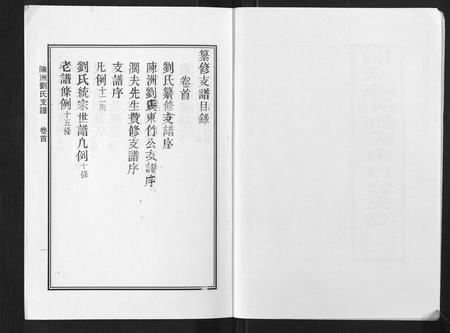 纂修支譜目錄
卷首
劉氏纂修支譜序
陳洲劉氏東竹公支譜序
澗夫先生賛修支譜序
支譜序
凡例十二則
劉氏統宗世譜凡例十條
老譜條例十五條
陳洲劉氏支譜 卷首 一